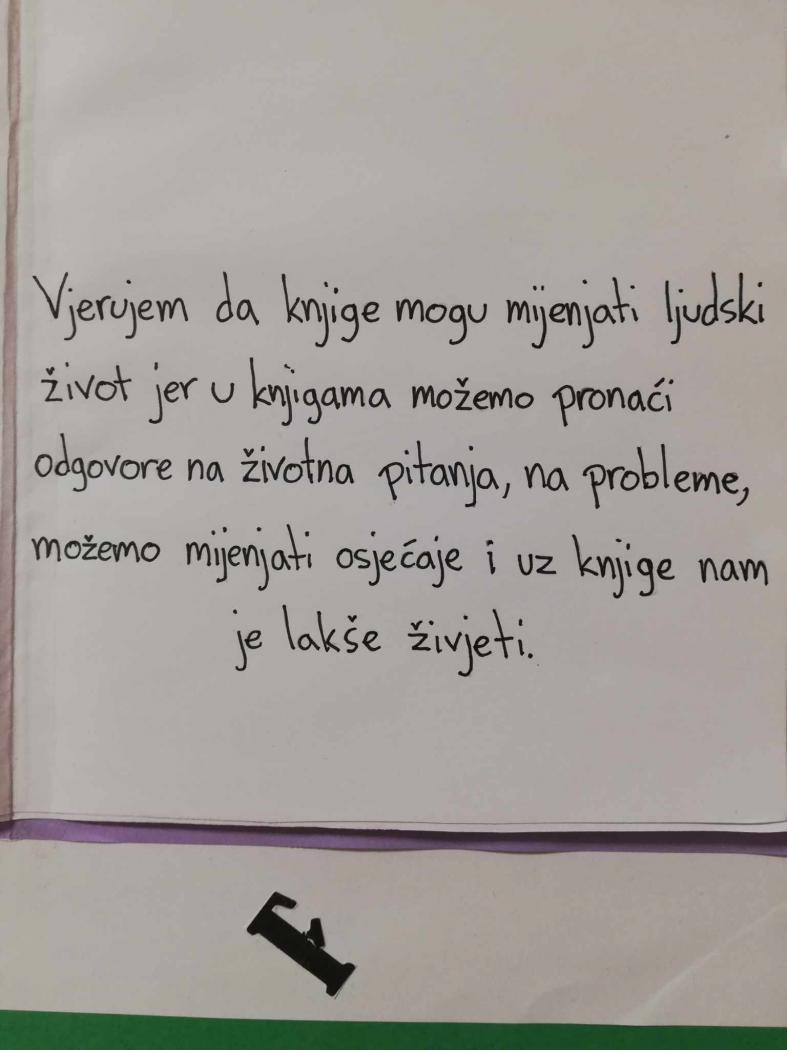 Vjerujem da knjige mogu mijenjati ljudski
život jer u knjigama možemo pronaći
odgovore na životna pitanja, na probleme,
možemo mijenjati osjećaje i uz knjige nam
je lakše živjeti.
F